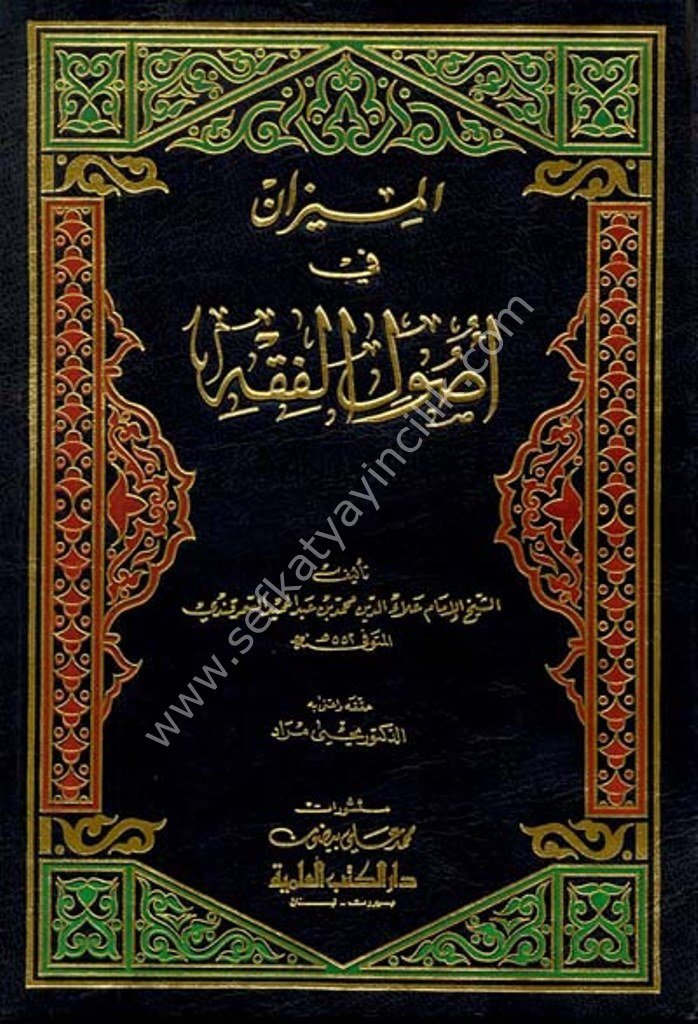 الميزان
في
أصول الفقه
تأليف
الشيخ الإمام علاء الدين محمد بن عبد الحميد السمرقندي
المتوفى ٥٥٢ هـ
حققه واعتنى به
الدكتور يحيى مراد
منشورات
محمد علي بيضون
دار الكتب العلمية
بيروت - لبنان
www.sefkatyayincilik.com